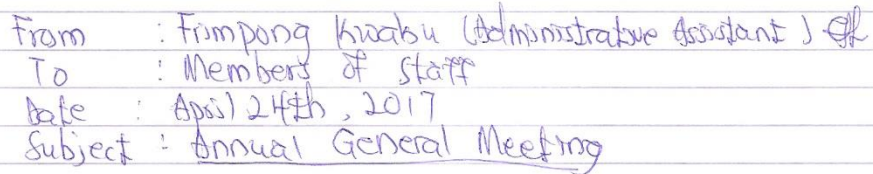 From : Frimpong Kwabu (Administrative Assistant)
To : Members of Staff
Date : April 24th, 2017
Subject : Annual General Meeting